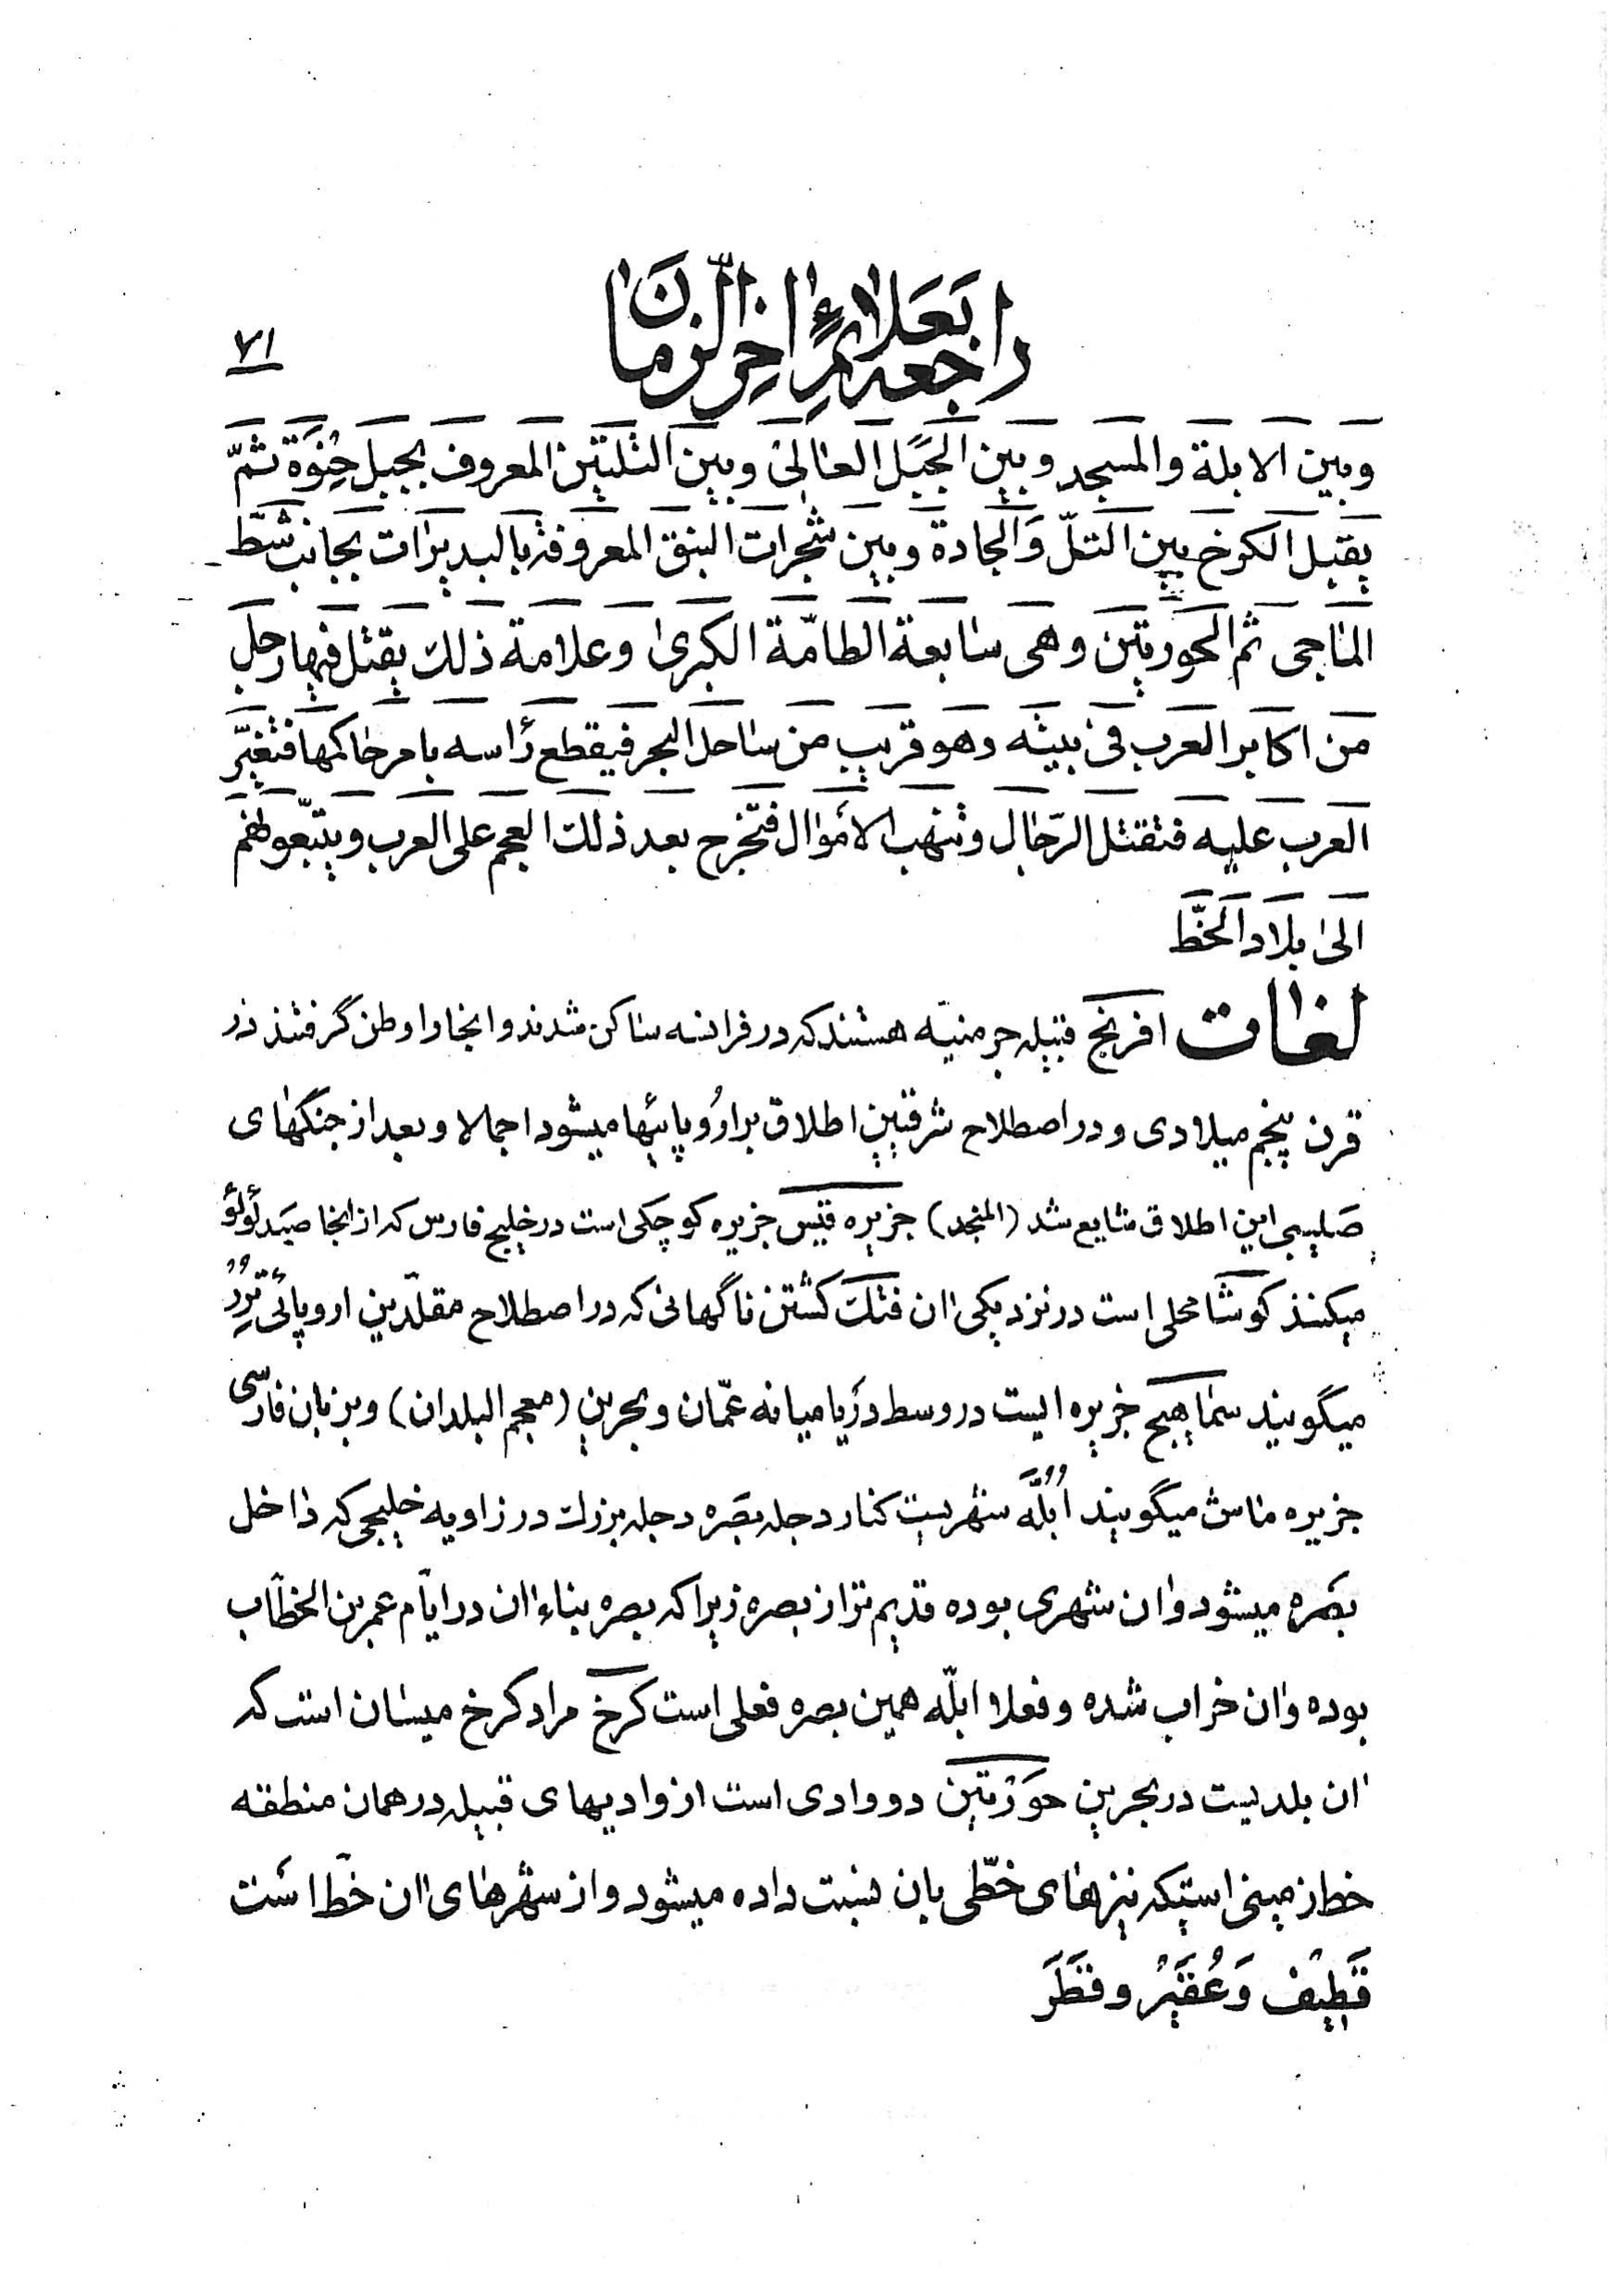 راجعه بعلائم اخر الزمان
۷۱
وبين الابلة والمسجد وبين الجبل العالى وبين التلتين المعروف بجبل حبوة ثمّ
يقبل الكرخ بين التلّ والجادة وبين شجرات النبق المعروفة بالبديرات بجانب شطّ
الماجى ثم الحورتين وهى سابعة الطامّة الكبرى وعلامة ذلك يقتل فيها رجل
من اكابر العرب فى بيته وهو قريب من ساحل البحر فيقطع رأسه بامر حاكمها فتغيّر
العرب عليه فتقتل الرّجال وتنهب الأموال فتخرج بعد ذلك العجم على العرب ويتّبعونهم
الى بلاد الخطّ
لغات افرنج قبيله جرمنيّه هستند كه در فرانسه ساكن شدند وانجا را وطن گرفتند در
قرن پنجم ميلادى و در اصطلاح شرقيين اطلاق بر اروپائيها ميشود اجمالا وبعد از جنگهاى
صليبى اين اطلاق شايع شد (المنجد) جزيره قيس جزيره كوچكى است در خليج فارس كه از انجا صيد لؤلؤ
ميكنند كوشا محلى است در نزديكى ان فتك كشتن ناگهانى كه در اصطلاح مقلّدين اروپائى ترور
ميگويند سماهيج جزيره ايست در وسط دريا ميانه عمّان و بحرين (معجم البلدان) و بزبان فارسى
جزيره ماش ميگويند ابُلّه شهريست كنار دجله بصره دجله بزرك در زاويه خليجى كه داخل
بصره ميشود وان شهرى بوده قديم تر از بصره زيرا كه بصره بناء ان در ايّام عمر بن الخطّاب
بوده وان خراب شده و فعلا ابلّه همين بصره فعلى است كرخ مراد كرخ ميسان است كه
ان بلديست در بحرين حورتين دو وادى است از واديهاى قبيله در همان منطقه
خط زمينى استكه نيزهاى خطّى بان نسبت داده ميشود و از شهرهاى ان خطّ است
قَطيف وَعُقَير و قَطَر